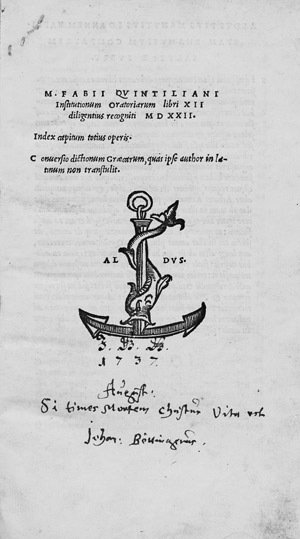 M. FABII QVINTILIANI
Institutionum Oratoriarum libri XII
diligentius recogniti MDXXII.
Index capitum totius operis.
Conuersio dictionum Græcarum, quas ipse author in la-
tinum non transtulit.
AL DVS.
1737.
August:
Si times Mortem Christus Vita est
Johan: